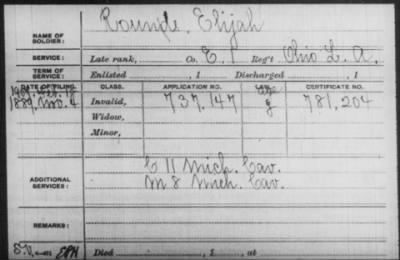 NAME OF SOLDIER: Rounds, Elijah
SERVICE: Late rank, Co. E. 1 Reg't Ohio L. A.
TERM OF SERVICE: Enlisted , 1 Discharged , 1
DATE OF FILING. CLASS. APPLICATION NO. LAW. CERTIFICATE NO.
1889. Nov. 4 Invalid, 737.147 781.204
Widow,
Minor,
ADDITIONAL SERVICES: C 11 Mich. Cav.
M 8 Mich. Cav.
REMARKS:
Died , 1 , at